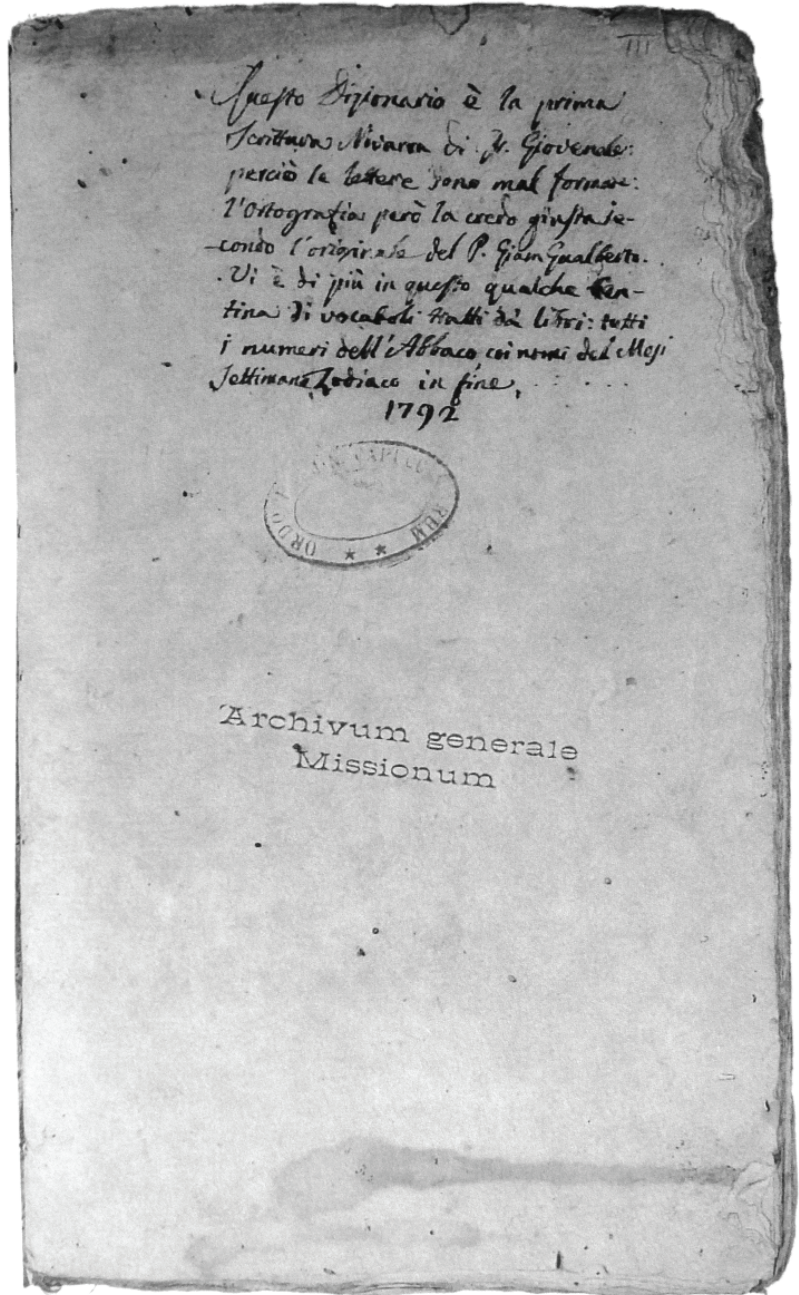 III
Questo Dizionario è la prima
Scrittura Nivarra di Fr. Giovenale:
perciò le lettere sono mal formate:
l'Ortografia però la credo giusta se-
condo l'originale del P. Giam Gualberto.
Vi è di più in questo qualche cen-
tina di vocaboli tratti dà libri: tutti
i numeri dell'Abbaco coi nomi de' Mesi
Settimane Zodiaco in fine
1792
ORDO CAPUCC RUM
Archivum generale
Missionum